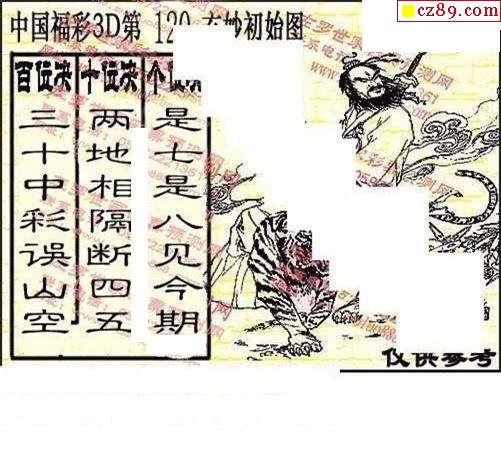 cz89.com
中国福彩3D第 120
初始图
百位决
十位决
三十中彩误山空
两地相隔断四五
是七是八见今期
仅供参考